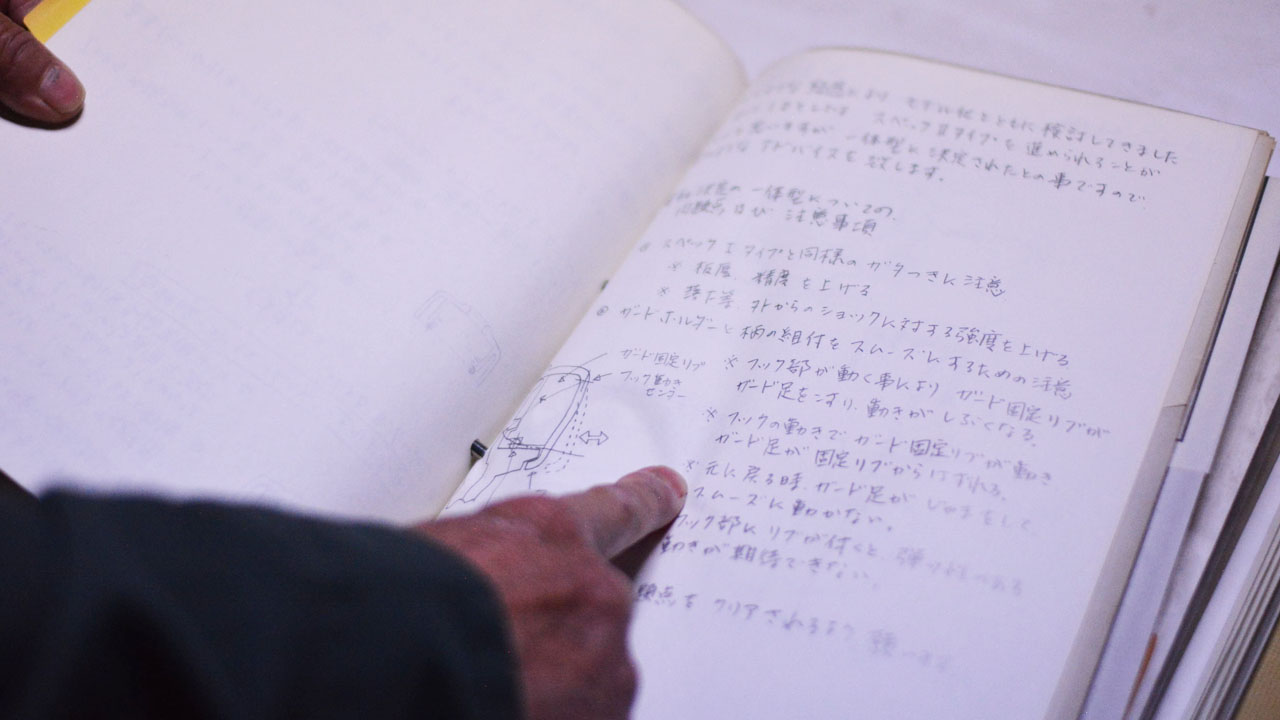 により モデル社とともに検討してきました
スペックⅡタイプを進められることが
思いますが、一体型に決定されたとの事ですので、
アドバイスを致します。
決定の一体型についての、
及び 注意事項
スペックⅠタイプと同様のガタつきに注意
※ 板厚、精度を上げる
※ 落下等、外からのショックに対する強度を上げる。
ガードホルダーと柄の組付をスムーズにするための注意
ガード固定リブ
フック動き
センター
※ フック部が動く事により ガード固定リブが
ガード足をこすり、動きがしぶくなる。
※ フックの動きでガード固定リブが動き
ガード足が固定リブからはずれる。
※ 元に戻る時、ガード足がじゃまをして
スムーズに動かない。
フック部にリブが付くと、弾
動きが期待できない。
点をクリアされるよう